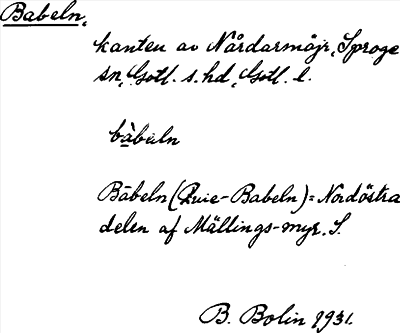 Babeln,
kanten av Nårdarmöjr, Sproge
sn, Gotl. s. hd, Gotl. l.
bàbẹln
Bäbeln (Quie-Babeln) = Nordöstra
delen af Mällings-myr. S.
B. Bolin 1931.